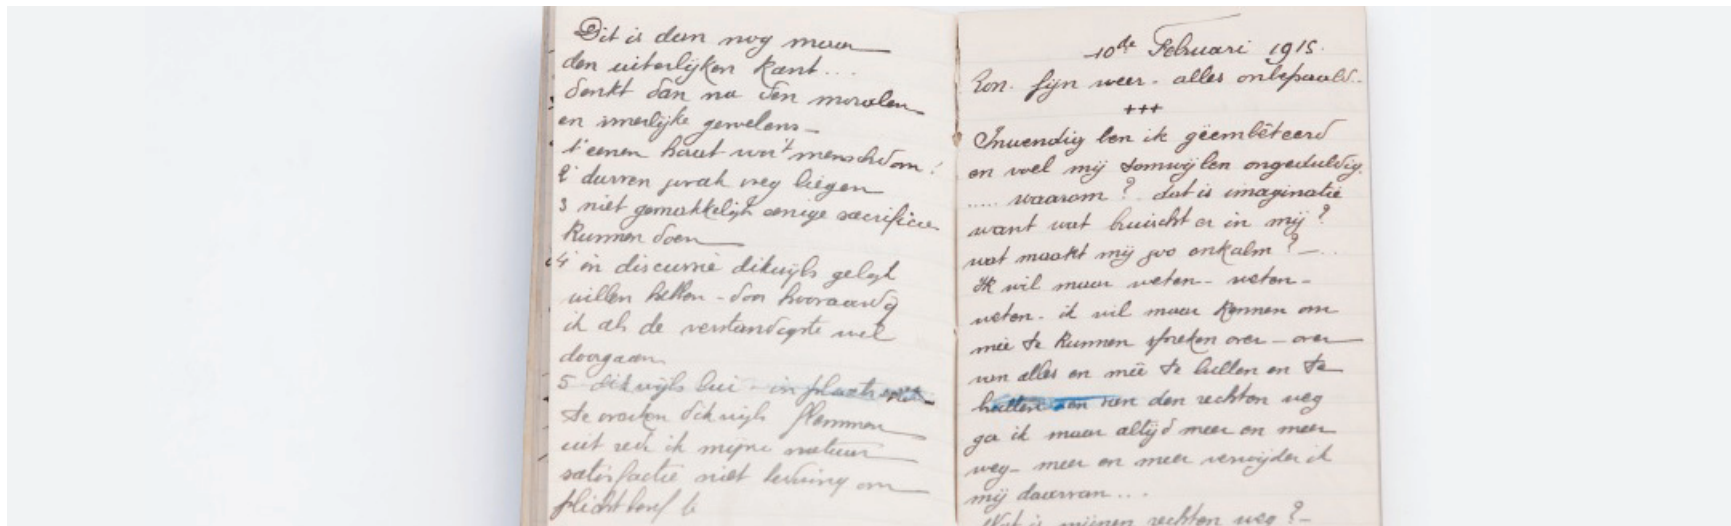 Dit is dan nog maar
den uiterlijken kant...
denkt dan na den moralen
en innerlijke gevoelens -
1° eenen haat voor 't menschdom!
2° durven vrah weg liegen
3 niet gemakkelijk eenige sacrificie
kunnen doen
4° in discussie dikwijls gelijk
willen hebben - don hooraardig
ik als de verstandigste wel
doorgaan
5 dikwijls lui - in plaats
te werken dikwijls flemmen
uit red ik mijne natuur
satisfactie niet
plicht
10de Februari 1915.
Zon. fijn weer - alles onbepaald -
+++
Inwendig ben ik gëembêteerd
en voel mij somwijlen ongeduldig.
..... waarom? dat is imaginatie
want wat bruischt er in mij?
wat maakt mij zoo onkalm? - ..
Ik wil maar weten - weten -
weten - ik wil maar kennen om
meê te kunnen spreken over - over
van alles en meê te lullen en te
lullen en van den rechten weg
ga ik maar altijd meer en meer
weg - meer en meer verwijder ik
mij daarvan ...
Wat is mijnen rechten weg? -